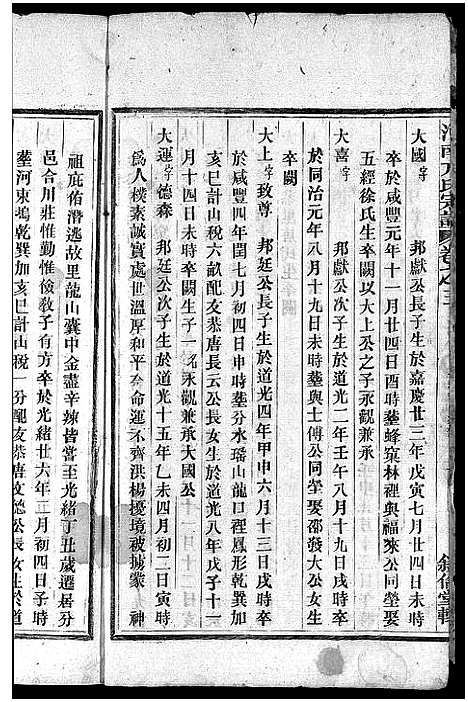 大國 字 邦獻公長子生於嘉慶廿三年戊寅七月廿四日未時
卒於咸豐元年十一月廿四日酉時塟蜂窠林裡與福來公同塋娶
方經徐氏生卒闕以大上公之子永觀兼承
大喜 字 邦獻公次子生於道光二年壬午八月十九日戌時卒
於同治元年八月十九日未時塟與士傳公同塋娶邵發大公女生
卒闕
大上 字致尊 邦廷公長子生於道光四年甲申六月十三日戌時
於咸豐四年閏七月初四日申時塟分水瑶山龍口裡鳳形乾巽加
亥巳計山稅六畝配友恭唐長云公長女生於道光八年戊子十二
月十四日未時卒闕生子一名永觀兼承大國公
大運 字德森 邦廷公次子生於道光十五年乙未四月初二日寅時
爲人樸素誠實處世溫厚和平奈命運不齊洪楊擾境被擄蒙 神
祖庇佑潛逃故里龍山囊中金盡辛辣皆嘗至光緒丁丑歲遷居分
邑合川莊惟勤惟儉敎子有方卒於光緒廿六年 月初四日子時
塟河東塢乾巽加亥巳計山稅一分配友恭唐 德公長女生於道
叙倫堂輯